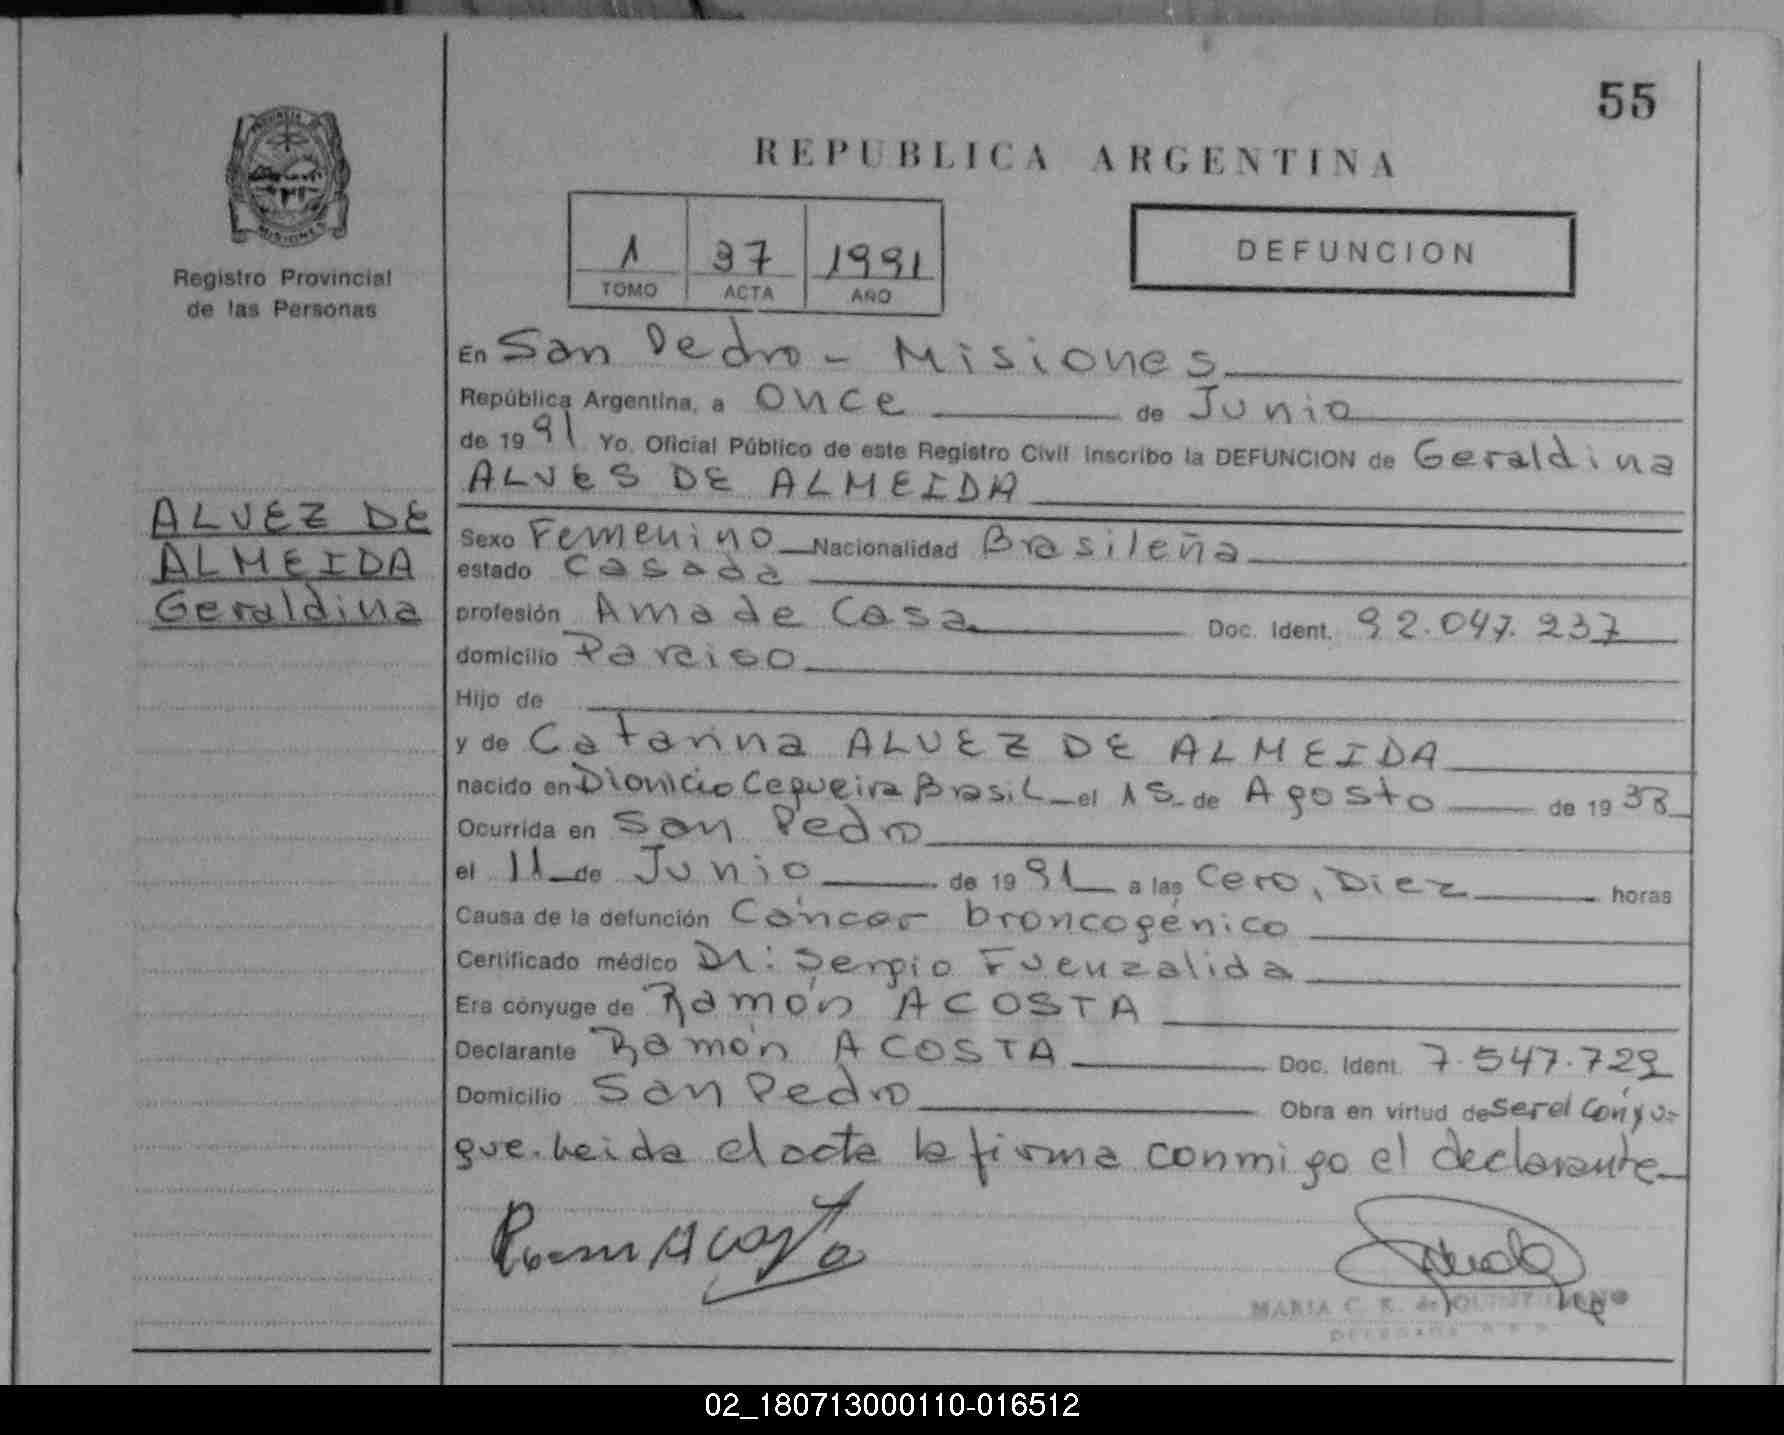 55
REPUBLICA ARGENTINA
PROVINCIA DE
MISIONES
Registro Provincial
de las Personas
1 37 1991
TOMO ACTA AÑO
DEFUNCION
ALVEZ DE
ALMEIDA
Geraldina
En San Pedro - Misiones
República Argentina, a Once de Junio
de 1991 Yo, Oficial Público de este Registro Civil inscribo la DEFUNCION de Geraldina
ALVES DE ALMEIDA
Sexo Femenino Nacionalidad Brasileña
estado Casada
profesión Ama de Casa Doc. Ident. 92.047.237
domicilio Paraiso
Hijo de
y de Catarina ALVEZ DE ALMEIDA
nacido en Dionicio Cequeira Brasil el 15 de Agosto de 1938
Ocurrida en San Pedro
el 11 de Junio de 1991 a las Cero, Diez horas
Causa de la defunción Cáncer broncogénico
Certificado médico Dr: Sergio Fuenzalida
Era cónyuge de Ramón ACOSTA
Declarante Ramón ACOSTA Doc. Ident. 7.547.729
Domicilio San Pedro Obra en virtud de ser el Cónyu-
gue. Leida el acta la firma conmigo el declarante
Ramon Acosta
MARIA C. R. de
02_180713000110-016512